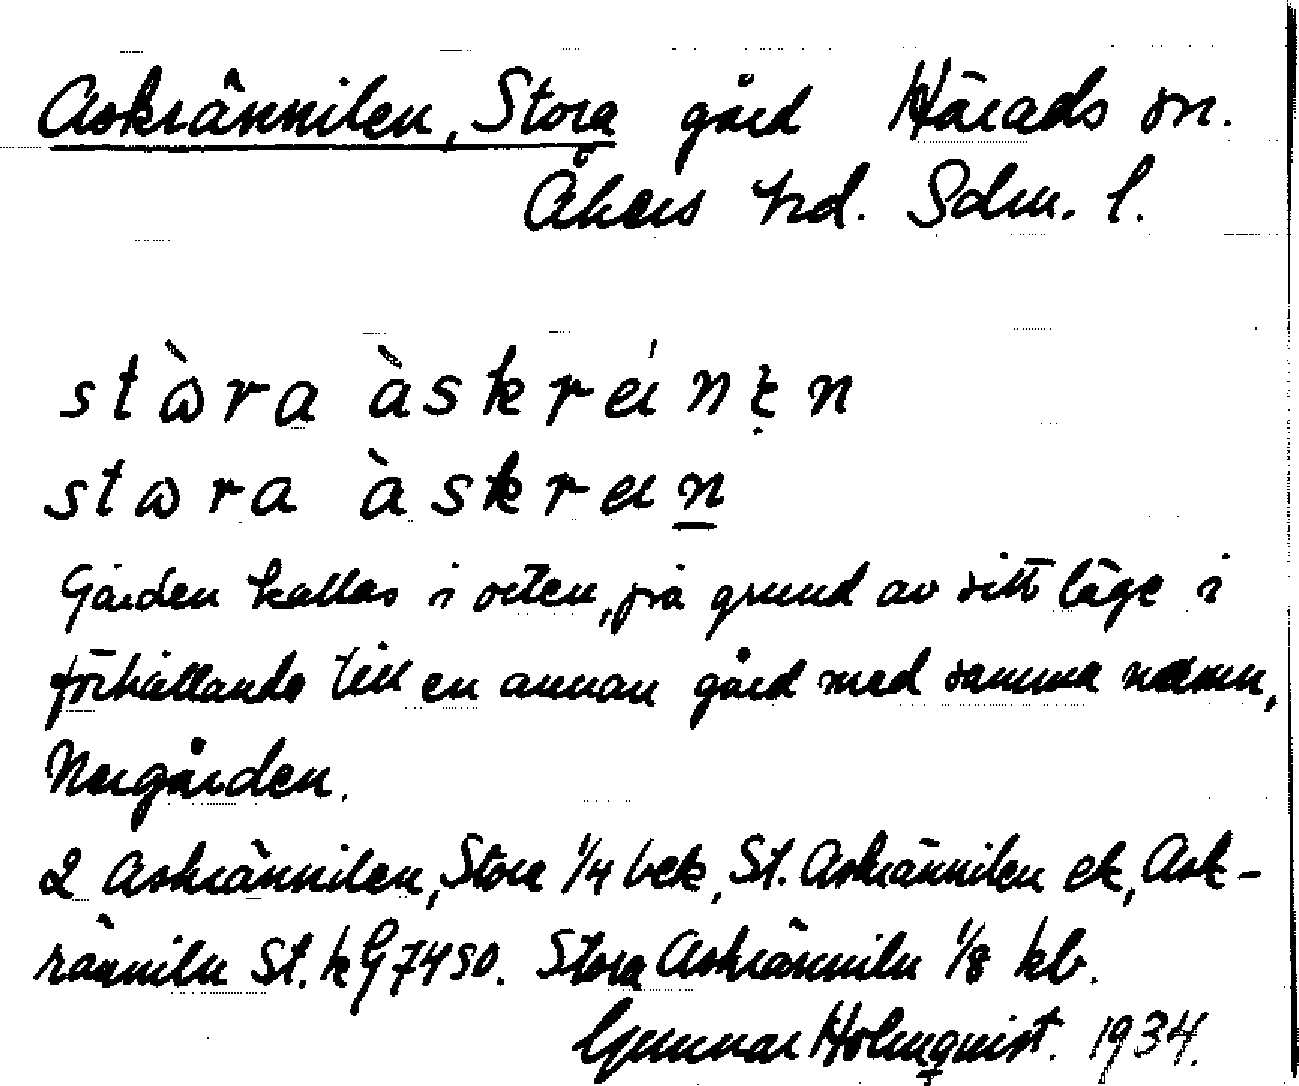 Askrännilen, Stora gård Härads sn.
Åkers hd. Sdm. l.
stὼra àskreińt̤n
stωra àskrein̲
Gården kallas i orten, på grund av sitt läge i
förhållande till en annan gård med samma namn,
Norgården.
2 Askrännilen, Stora 1/4 bek, St. Askrännilen ek, Ask-
ränniln St. k G 7450. Stora Askränniln 1/8 kb.
Gunnar Holmquist. 1934.